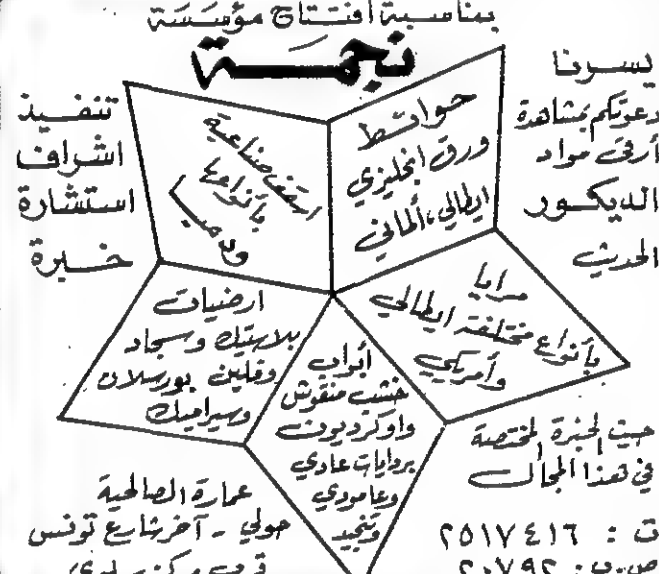 بمناسبة افتتاح مؤسسة
نجمة
يسرنا
دعوتكم بمشاهدة
أرقى مواد
الديكور
الحديث
تنفيذ
اشراف
استشارة
خبرة
حوائط
ورق انجليزي
ايطالي، ألماني
اسقف صناعية
بأنواعها
مرايا
بأنواع مختلفة ايطالي
وأمريكي
ارضيات
بلاستيك وسجاد
وفلين بورسلان
وسيراميك
أبواب
خشب منقوش
واوكرديون
بردايات عادي
وعامودي
وتنجيد
حيث الخبرة المختصة
في هذا المجال
ت : ٢٥١٧٤١٦
ص.ب: ٢٠٧٩٢
عمارة الصالحية
حولي - آخر شارع تونس
قرب مركز